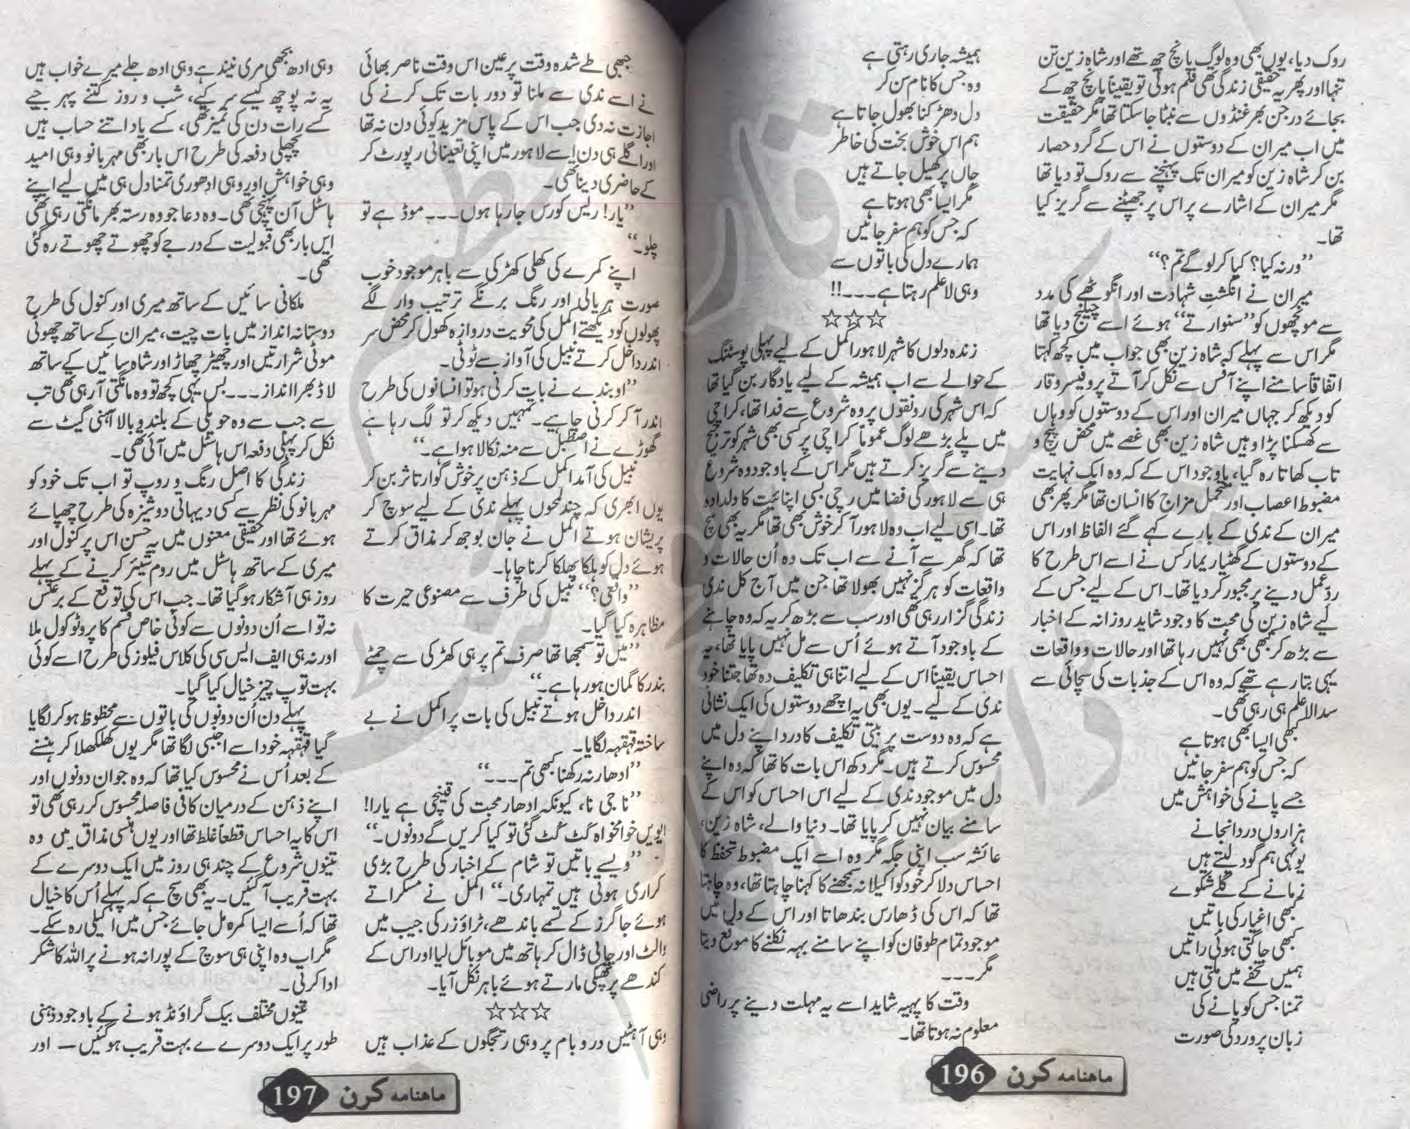 روک دیا، یوں بھی وہ لوگ پانچ چھ تھے اور شاہ زین تن
تنہا اور پھر یہ حقیقی زندگی تھی فلم ہوتی تو یقیناً پانچ چھ کے
بجائے درجن بھر غنڈوں سے نبٹا جاسکتا تھا مگر حقیقت
میں اب میران کے دوستوں نے اس کے گرد حصار
بن کر شاہ زین کو میران تک پہنچنے سے روک تو دیا تھا
مگر میران کے اشارے پر اس پر جھپٹنے سے گریز کیا
تھا۔
”ورنہ کیا؟ کیا کرلو گے تم؟“
میران نے انگشت شہادت اور انگوٹھے کی مدد
سے مونچھوں کو ”سنوارتے“ ہوئے اسے چیلنج دیا تھا
مگر اس سے پہلے کہ شاہ زین بھی جواب میں کچھ کہتا
اتفاقاً سامنے اپنے آفس سے نکل کر آتے پروفیسر وقار
کو دیکھ کر جہاں میران اور اس کے دوستوں کو وہاں
سے کھسکنا پڑا وہیں شاہ زین بھی غصے میں محض پیچ و
تاب کھاتا رہ گیا، باوجود اس کے کہ وہ ایک نہایت
مضبوط اعصاب اور تحمل مزاج کا انسان تھا مگر پھر بھی
میران کے ندی کے بارے کہے گئے الفاظ اور اس
کے دوستوں کے گھٹیا ریمارکس نے اسے اس طرح کا
ردعمل دینے پر مجبور کردیا تھا۔ اس کے لیے جس کے
لیے شاہ زین کی محبت کا وجود شاید روزانہ کے اخبار
سے بڑھ کر کبھی بھی نہیں رہا تھا اور حالات و واقعات
یہی بتا رہے تھے کہ وہ اس کے جذبات کی سچائی سے
سدا لاعلم ہی رہی تھی۔
کبھی ایسا بھی ہوتا ہے
کہ جس کو ہم سفر جانیں
جسے پانے کی خواہش میں
ہزاروں درد انجانے
یونہی ہم گود لیتے ہیں
زمانے کے گلے شکوے
کبھی اغیار کی باتیں
کبھی جاگتی ہوئی راتیں
ہمیں تحفے میں ملتی ہیں
تمنا جس کو پانے کی
زبان پر ورد کی صورت
ہمیشہ جاری رہتی ہے
وہ جس کا نام سن کر
دل دھڑکنا بھول جاتا ہے
ہم اس خوش بخت کی خاطر
جاں پر کھیل جاتے ہیں
مگر ایسا بھی ہوتا ہے
کہ جس کو ہم سفر جانیں
ہمارے دل کی باتوں سے
وہی لاعلم رہتا ہے۔۔۔!!
☆☆☆
زندہ دلوں کا شہر لاہور اکمل کے لیے پہلی پوسٹنگ
کے حوالے سے اب ہمیشہ کے لیے یادگار بن گیا تھا
کہ اس شہر کی رونقوں پر وہ شروع سے فدا تھا، کراچی
میں پلے بڑھے لوگ عموماً کراچی پر کسی بھی شہر کو ترجیح
دینے سے گریز کرتے ہیں مگر اس کے باوجود وہ شروع
ہی سے لاہور کی فضا میں رچی بسی اپنائیت کا دلدادہ
تھا۔ اسی لیے اب وہ لاہور آکر خوش بھی تھا مگر یہ بھی سچ
تھا کہ گھر سے آنے سے اب تک وہ اُن حالات و
واقعات کو ہرگز نہیں بھولا تھا جن میں آج کل ندی
زندگی گزار رہی تھی اور سب سے بڑھ کر یہ کہ وہ چاہنے
کے باوجود آتے ہوئے اُس سے مل نہیں پایا تھا، یہ
احساس یقیناً اس کے لیے اتنا ہی تکلیف دہ تھا جتنا خود
ندی کے لیے۔ یوں بھی یہ اچھے دوستوں کی ایک نشانی
ہے کہ وہ دوست پر بیتی تکلیف کا درد اپنے دل میں
محسوس کرتے ہیں۔ مگر دکھ اس بات کا تھا کہ وہ اپنے
دل میں موجود ندی کے لیے اس احساس کو اس کے
سامنے بیان نہیں کر پایا تھا۔ دنیا والے، شاہ زین،
عائشہ سب اپنی جگہ مگر وہ اسے ایک مضبوط تحفظ کا
احساس دلا کر خود کو اکیلا نہ سمجھنے کا کہنا چاہتا تھا، وہ چاہتا
تھا کہ اس کی ڈھارس بندھاتا اور اس کے دل میں
موجود تمام طوفان کو اپنے سامنے بہہ نکلنے کا موقع دیتا
مگر۔۔۔
وقت کا پہیہ شاید اسے یہ مہلت دینے پر راضی
معلوم نہ ہوتا تھا۔
ماہنامہ کرن 196
جبھی طے شدہ وقت پر عین اس وقت ناصر بھائی
نے اسے ندی سے ملنا تو دور بات تک کرنے کی
اجازت نہ دی جب اس کے پاس مزید کوئی دن نہ تھا
اور اگلے ہی دن اسے لاہور میں اپنی تعیناتی رپورٹ کر
کے حاضری دینا تھی۔
”یار! ریس کورس جارہا ہوں۔۔۔ موڈ ہے تو
چلو۔“
اپنے کمرے کی کھلی کھڑکی سے باہر موجود خوب
صورت ہریالی اور رنگ برنگے ترتیب وار لگے
پھولوں کو دیکھتے اکمل کی محویت دروازہ کھول کر محض سر
اندر داخل کرتے نبیل کی آواز سے ٹوٹی۔
”او بندے نے بات کرنی ہو تو انسانوں کی طرح
اندر آ کر کرنی چاہیے۔ تمہیں دیکھ کر تو لگ رہا ہے
گھوڑے نے اصطبل سے منہ نکالا ہوا ہے۔“
نبیل کی آمد اکمل کے ذہن پر خوش گوار تاثر بن کر
یوں ابھری کہ چند لمحوں پہلے ندی کے لیے سوچ کر
پریشان ہوتے اکمل نے جان بوجھ کر مذاق کرتے
ہوئے دل کو ہلکا پھلکا کرنا چاہا۔
”واقعی؟“ نبیل کی طرف سے مصنوعی حیرت کا
مظاہرہ کیا گیا۔
”میں تو سمجھا تھا صرف تم پر ہی کھڑکی سے چمٹے
بندر کا گمان ہو رہا ہے۔“
اندر داخل ہوتے نبیل کی بات پر اکمل نے بے
ساختہ قہقہہ لگایا۔
”ادھار نہ رکھنا کبھی تم۔۔۔“
”نا جی نا، کیونکہ ادھار محبت کی قینچی ہے یارا!
ایویں خوامخواہ کٹ کٹ گئی تو کیا کریں گے دونوں۔“
”ویسے باتیں تو شام کے اخبار کی طرح بڑی
کراری ہوتی ہیں تمہاری۔“ اکمل نے مسکراتے
ہوئے جاگرز کے تسمے باندھے، ٹراؤزر کی جیب میں
والٹ اور چابی ڈال کر ہاتھ میں موبائل لیا اور اس کے
کندھے پر تھپکی مارتے ہوئے باہر نکل آیا۔
☆☆☆
وہی آہٹیں در و بام پر وہی رتجگوں کے عذاب ہیں
وہی ادھ بجھی مری نیند ہے وہی ادھ جلے میرے خواب ہیں
یہ نہ پوچھ کیسے بسر کیے، شب و روز کتنے پہر جیے
کسے رات دن کی تمیز تھی، کسے یاد اتنے حساب ہیں
پچھلی دفعہ کی طرح اس بار بھی مہر بانو وہی امید
وہی خواہش اور وہی ادھوری تمنا دل ہی میں لیے اپنے
ہاسٹل آن پہنچی تھی۔ وہ دعا جو وہ رستہ بھر مانگتی رہی تھی
اس بار بھی قبولیت کے درجے کو چھوتے چھوتے رہ گئی
تھی۔
ملکانی سائیں کے ساتھ میری اور کنول کی طرح
دوستانہ انداز میں بات چیت، میران کے ساتھ چھوٹی
موٹی شرارتیں اور چھیڑ چھاڑ اور شاہ سائیں کے ساتھ
لاڈ بھرا انداز۔۔۔ بس یہی کچھ تو وہ مانگتی آرہی تھی تب
سے جب سے وہ حویلی کے بلند و بالا آہنی گیٹ سے
نکل کر پہلی دفعہ اس ہاسٹل میں آئی تھی۔
زندگی کا اصل رنگ و روپ تو اب تک خود کو
مہر بانو کی نظر سے کسی دیہاتی دوشیزہ کی طرح چھپائے
ہوئے تھا اور حقیقی معنوں میں یہ حسن اس پر کنول اور
میری کے ساتھ ہاسٹل میں روم شیئر کرنے کے پہلے
روز ہی آشکار ہوگیا تھا۔ جب اس کی توقع کے برعکس
نہ تو اسے اُن دونوں سے کوئی خاص قسم کا پروٹوکول ملا
اور نہ ہی ایف ایس سی کی کلاس فیلوز کی طرح اسے کوئی
بہت توپ چیز خیال کیا گیا۔
پہلے دن اُن دونوں کی باتوں سے محظوظ ہو کر لگایا
گیا قہقہہ خود اسے اجنبی لگا تھا مگر یوں کھلکھلا کر ہنسنے
کے بعد اُس نے محسوس کیا تھا کہ وہ جو ان دونوں اور
اپنے ذہن کے درمیان کافی فاصلہ محسوس کررہی تھی تو
اس کا یہ احساس قطعاً غلط تھا اور یوں ہنسی مذاق میں وہ
تینوں شروع کے چند ہی روز میں ایک دوسرے کے
بہت قریب آگئیں۔ یہ بھی سچ ہے کہ پہلے اُس کا خیال
تھا کہ اُسے ایسا کمرہ مل جائے جس میں اکیلی رہ سکے۔
مگر اب وہ اپنی ہی سوچ کے پورا نہ ہونے پر اللہ کا شکر
ادا کرتی۔
تینوں مختلف بیک گراؤنڈ ہونے کے باوجود ذہنی
طور پر ایک دوسرے سے بہت قریب ہوگئیں – اور
ماہنامہ کرن 197